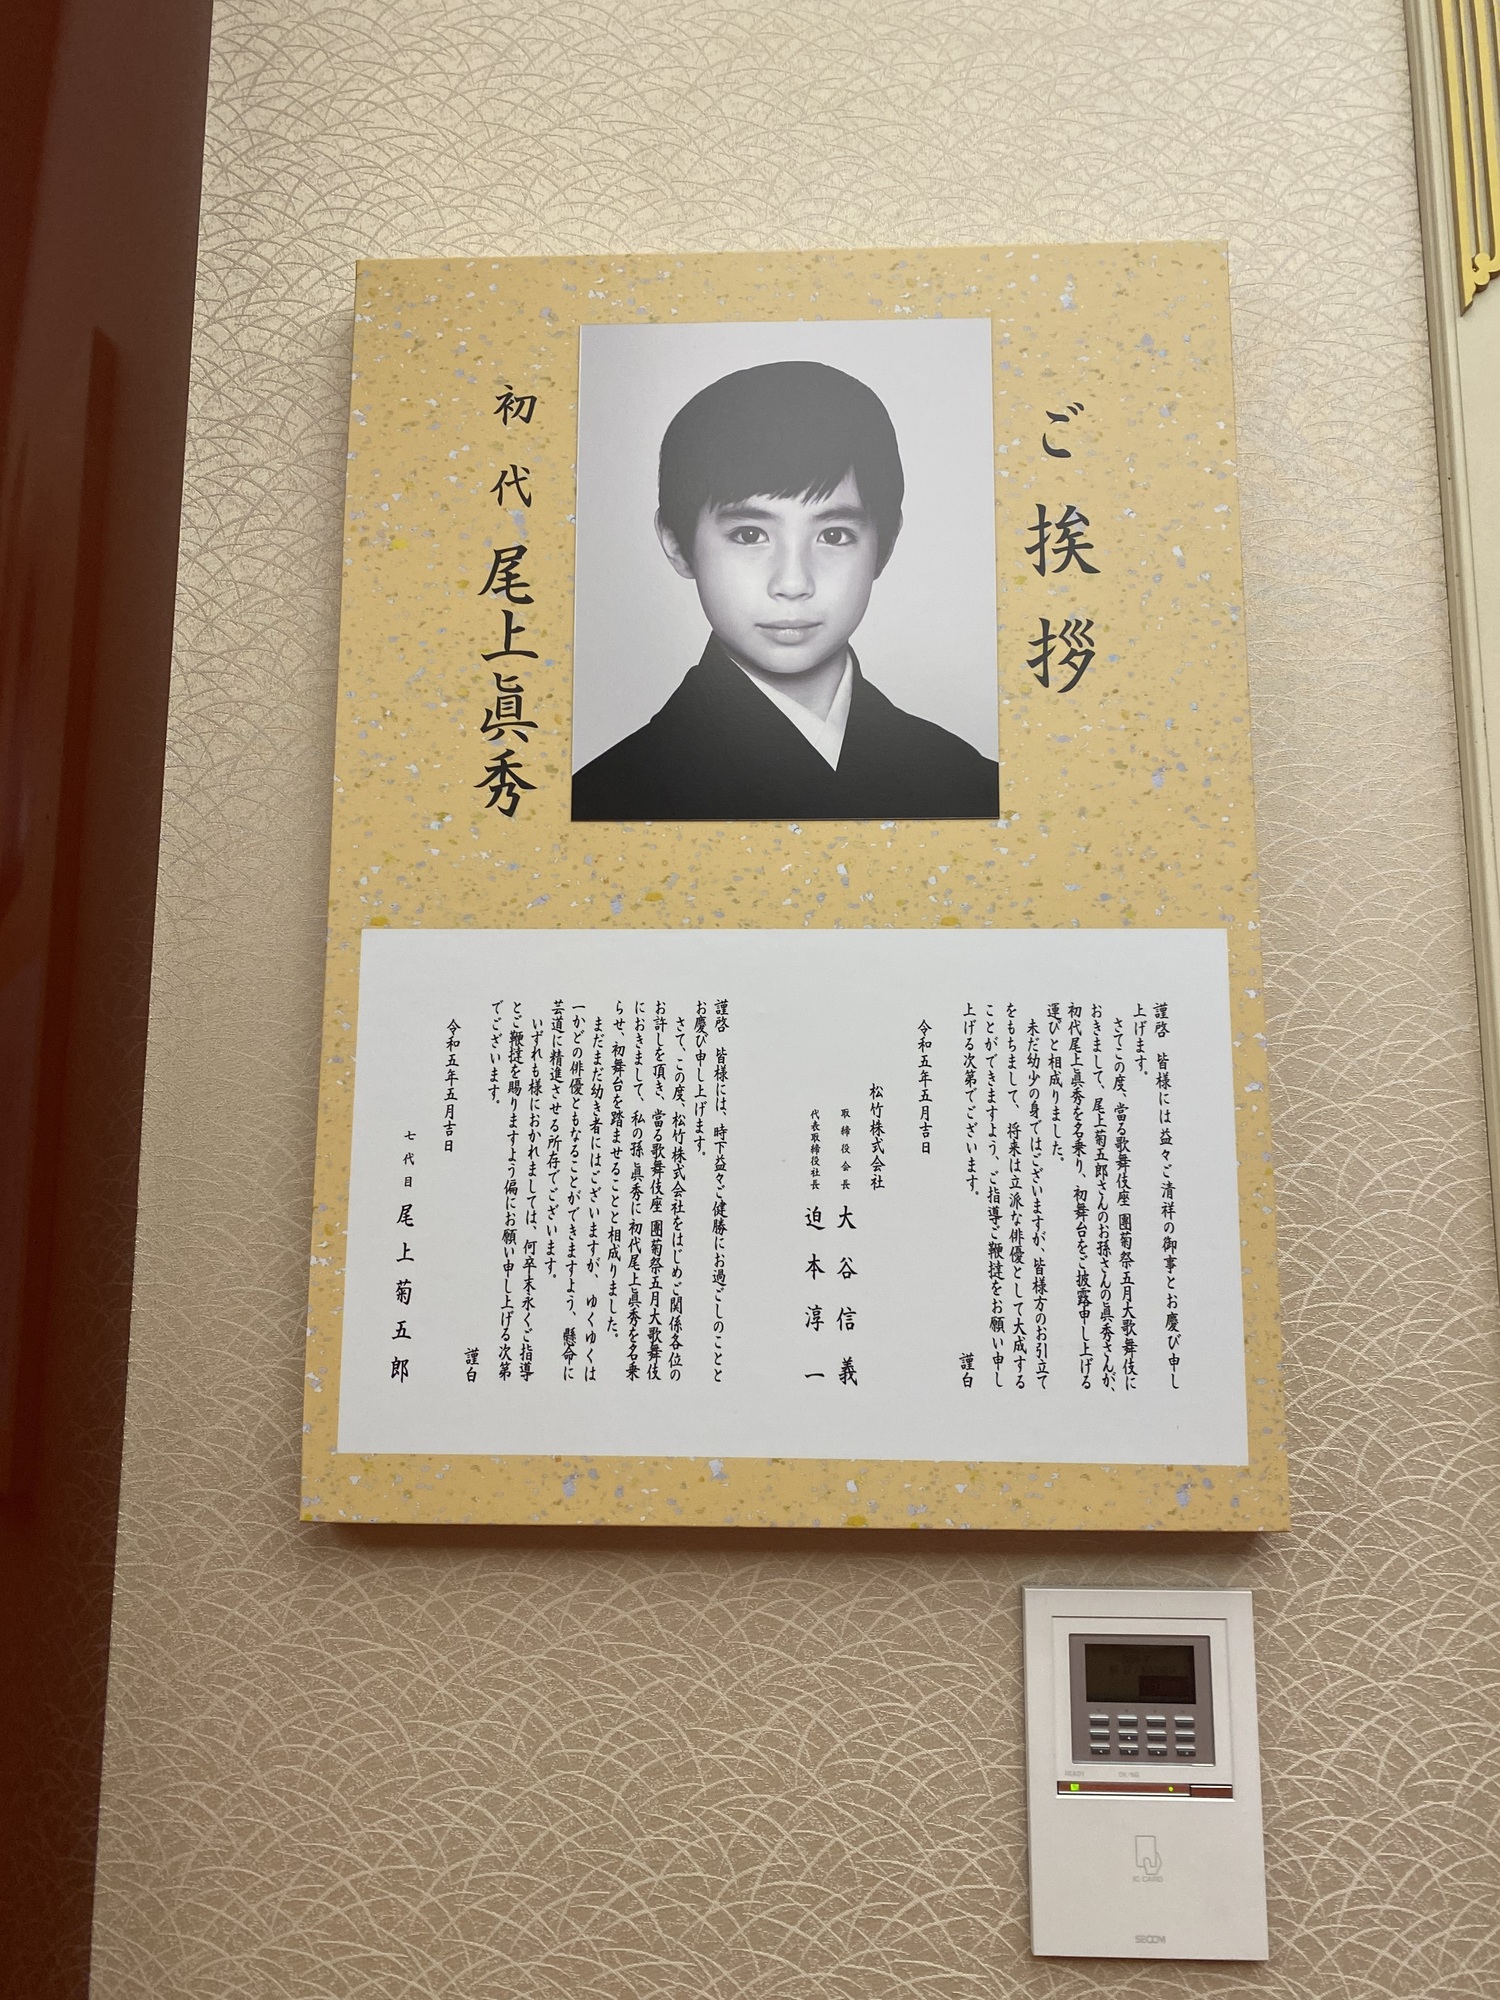 ご挨拶
初代 尾上眞秀
謹啓 皆様には益々ご清祥の御事とお慶び申し
上げます。
さてこの度、當る歌舞伎座 團菊祭五月大歌舞伎に
おきまして、尾上菊五郎さんのお孫さんの眞秀さんが、
初代尾上眞秀を名乗り、初舞台をご披露申し上げる
運びと相成りました。
未だ幼少の身ではございますが、皆様方のお引立て
をもちまして、将来は立派な俳優として大成する
ことができますよう、ご指導ご鞭撻をお願い申し
上げる次第でございます。
謹白
令和五年五月吉日
松竹株式会社
取締役会長 大谷信義
代表取締役社長 迫本淳一
謹啓 皆様には、時下益々ご健勝にお過ごしのことと
お慶び申し上げます。
さて、この度、松竹株式会社をはじめご関係各位の
お許しを頂き、當る歌舞伎座 團菊祭五月大歌舞伎
におきまして、私の孫 眞秀に初代尾上眞秀を名乗
らせ、初舞台を踏ませることと相成りました。
まだまだ幼き者にはございますが、ゆくゆくは
一かどの俳優ともなることができますよう、懸命に
芸道に精進させる所存でございます。
いずれも様におかれましては、何卒末永くご指導
とご鞭撻を賜りますよう偏にお願い申し上げる次第
でございます。
謹白
令和五年五月吉日
七代目 尾上菊五郎
READY
OK/NG
IC CARD
SECOM